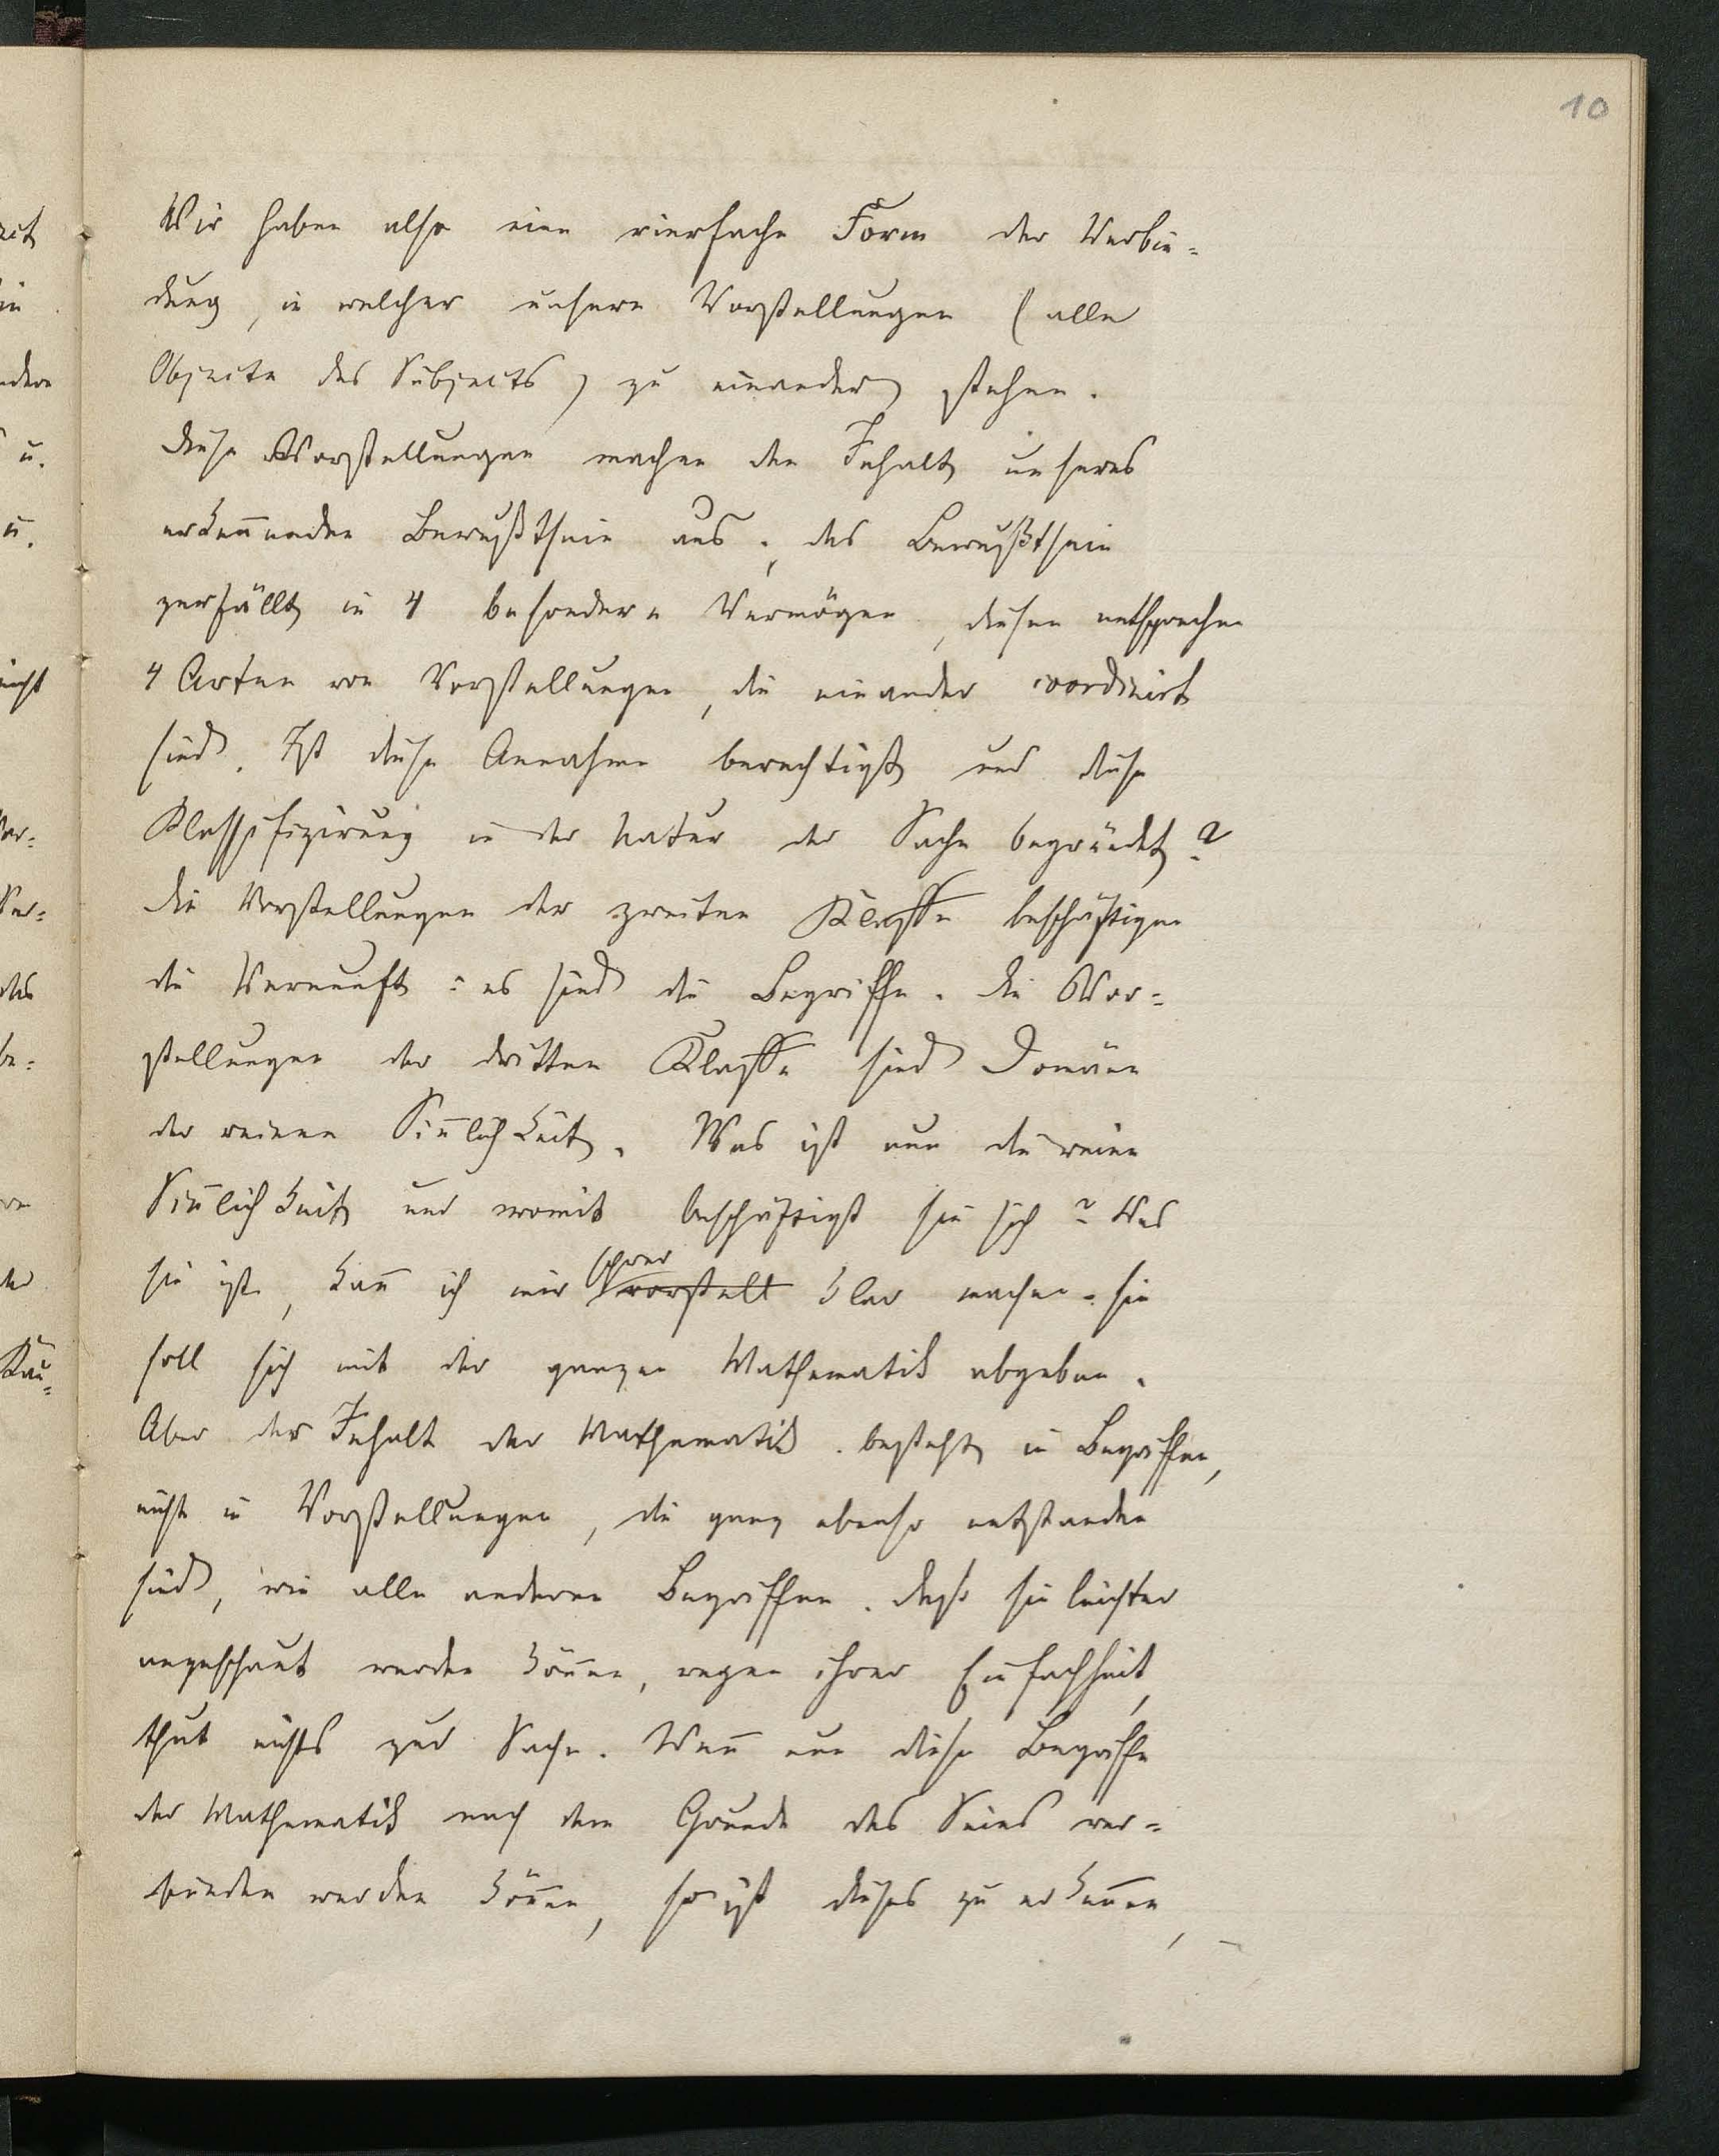 10
Wir haben also eine vierfache Form der Verbin-
dung, in welcher unsere Vorstellungen (alle
Objecte des Subjects) zu einander stehen.
Diese Vorstellungen machen den Inhalt unseres
erkennenden Bewußtsein aus; das Bewußtsein
zerfällt in 4 besondere Vermögen, diesen entsprechen
4 Arten von Vorstellungen, die einander coordinirt
sind. Ist diese Annahme berechtigt und diese
Klassifizirung in der Natur der Sache begründet?
Die Vorstellungen der zweiten Klasse beschäftigen
die Vernunft: es sind die Begriffe. Die Vor-
stellungen der dritten Klasse sind Domäne
der reinen Sinnlichkeit. Was ist nun die reine
Sinnlichkeit und womit beschäftigt sie sich? Was
sie ist, kann ich mir schwer vorstell klar machen. sie
soll sich mit der ganzen Mathematik abgeben.
Aber der Inhalt der Mathematik besteht in Begriffen,
nicht in Vorstellungen, die ganz ebenso entstanden
sind, wie alle anderen Begriffen. Dass sie leichter
angeschaut werden können, wegen ihrer Einfachheit,
thut nichts zur Sache. Wenn nun diese Begriffe
der Mathematik nach dem Grunde des Seins ver-
bunden werden können, so ist dieses zu erkennen, –